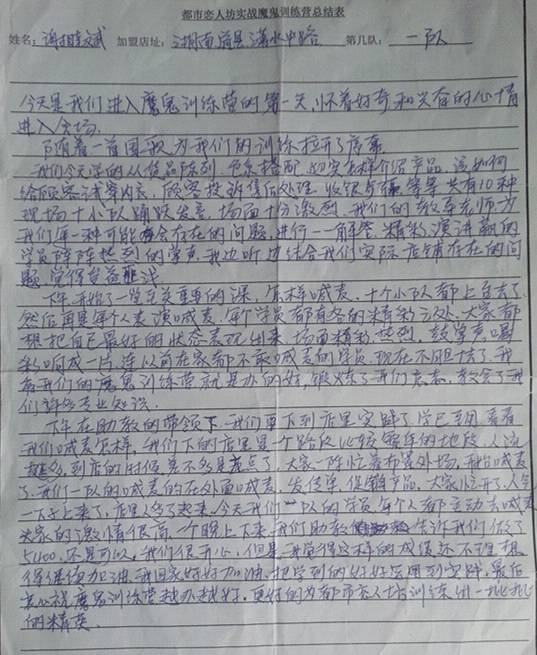 都市恋人坊实战魔鬼训练营总结表
姓名: 加盟店址: 湖南道县潇水中路 第几队: 一队
今天是我们进入魔鬼训练营的第一天,怀着好奇和兴奋的心情
进入会场.
随着一首国歌为我们的训练拉开了序幕
我们今天学的从货品陈列.色彩搭配.如实怎样介绍产品.该如何
给顾客试穿内衣.顾客投诉售后处理.收银与 等等共有10种
现场十小队踊跃发言.场面十份激烈.我们的教导老师为
我们每一种可能会存在的问题.进行一一解答.精彩演讲赢的
学员阵阵热烈的掌声.我边听边结合我们实际店铺存在的问
题.觉得受益匪浅
下午.开始了一堂至关重要的课,怎样喊麦,十个小队都上台去了.
然后再是每个人表演喊麦.每个学员都有各的精彩之处.大家都
想把自己最好的状态表现出来.场面精彩热烈.鼓掌声.喝
彩响成一片.连以前在家都不敢喊麦的学员.现在不胆怯了.我
看我们的魔鬼训练营就是办的好,锻炼了我们意志,教会了我
们许多专业知识.
下午在助教的带领下.我们再下到店里实践了.学已至用.看看
我们喊麦怎样,我们下的店里是一个路段比较繁华的地段.人流
挺多,到店的时候差不多是 点了,大家一阵忙着布置外场.开始喊麦
了.我们一队的喊麦的在外面喊麦,发传单.促销产品.大家忙开了.人气
一下子上来了,店里人多了起来.今天我们一队的学员每个人都主动去喊麦
大家的激情很高.一个晚上下来.我们助教 告诉我们做了
5400.还是可以.我们很开心,但是我觉得这样的成绩还不理想
得继续加油.我回家好好加油.把学到的好好运用到实践.最后
衷心祝魔鬼训练营越办越好,更好的为都市恋人坊训练出一批批
的精英.